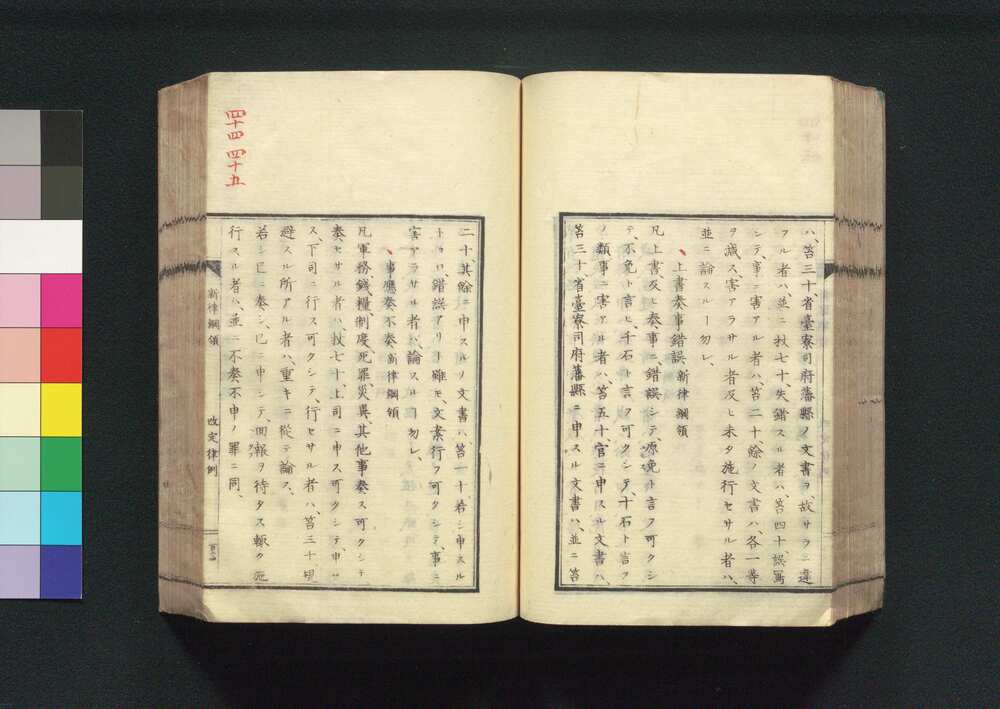 ハ、笞三十、省臺寮司府藩縣ノ文書ヲ、故サラニ違
フル者ハ、並ニ杖七十、失錯スル者ハ、笞四十、誤寫
シテ、事ニ害アル者ハ、笞二十、餘ノ文書ハ、各一等
ヲ減ス、害アラサル者及ヒ未タ施行セサル者ハ、
並ニ論スルヿ勿レ、
上書奏事錯誤 新律綱領
凡上書及ヒ奏事ニ錯誤シテ、原免ト言フ可クシ
テ、不免ト言ヒ、千石ト言フ可クシテ、十石ト言フ
ノ類、事ニ害アル者ハ、笞五十、官ニ申スル文書ハ、
笞三十、省臺寮司府藩縣ニ申スル文書ハ、並ニ笞
二十、其餘ニ申スルノ文書ハ、笞一十、若シ申スル
トコロ、錯誤アリト雖モ、文案行フ可クシテ、事ニ
害アラサル者ハ、論スルヿ勿レ、
事應奏不奏 新律綱領
凡軍務、錢糧、制度、死罪、災異、其他事奏ス可クシテ
奏セサル者ハ、杖七十、上司ニ申ス可クシテ、申セ
ス、下司ニ行ス可クシテ、行セサル者ハ、笞三十、規
避スル所アル者ハ、重キニ從テ論ス、
若シ已ニ奏シ、已ニ申シテ、回報ヲ待タス、輙ク施
行スル者ハ、並ニ不奏不申ノ罪ニ同、
四十四 四十五
新律綱領
改定律例